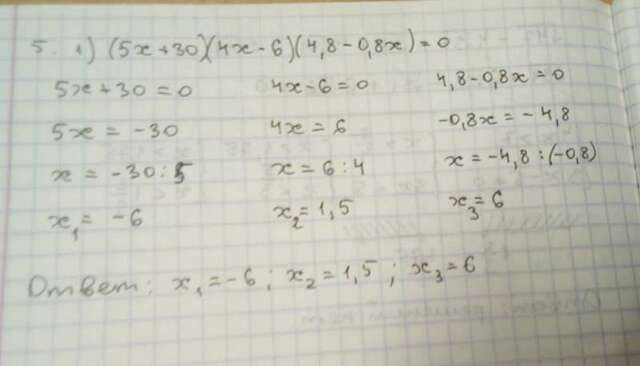 5. 1) (5x+30)(4x-6)(4,8-0,8x)=0
5x+30=0 4x-6=0 4,8-0,8x=0
5x=-30 4x=6 -0,8x=-4,8
x=-30:5 x=6:4 x=-4,8:(-0,8)
x₁=-6 x₂=1,5 x₃=6
Ответ: x₁=-6; x₂=1,5; x₃=6